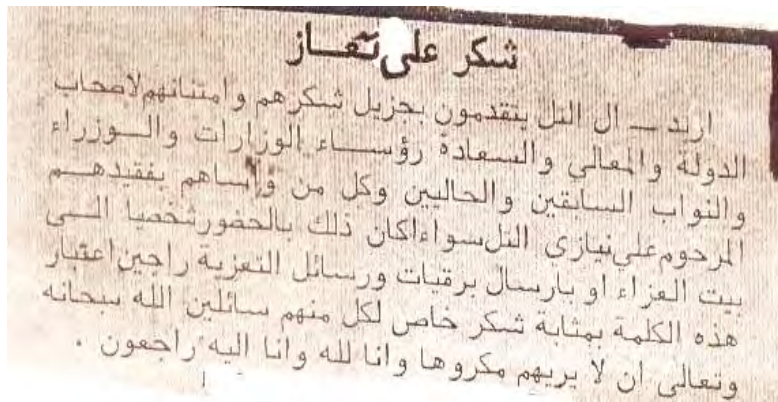 شكر على تعاز
اربد — ال التل يتقدمون بجزيل شكرهم وامتنانهم لاصحاب
الدولة والمعالي والسعادة رؤساء الوزارات والوزراء
والنواب السابقين والحاليين وكل من واساهم بفقيدهم
المرحوم علي نيازي التل سواء اكان ذلك بالحضور شخصيا الى
بيت العزاء او بارسال برقيات ورسائل التعزية راجين اعتبار
هذه الكلمة بمثابة شكر خاص لكل منهم سائلين الله سبحانه
وتعالى ان لا يريهم مكروها وانا لله وانا اليه راجعون .